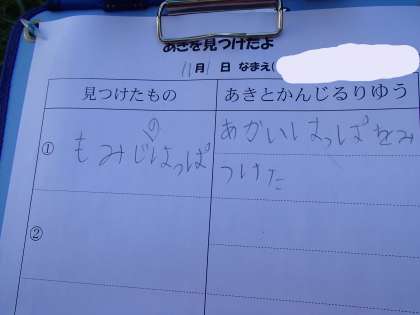 あきを見つけたよ
11月1日 なまえ(
見つけたもの
あきとかんじるりゆう
①
もみじのはっぱ
あかいはっぱをみ
つけた
②